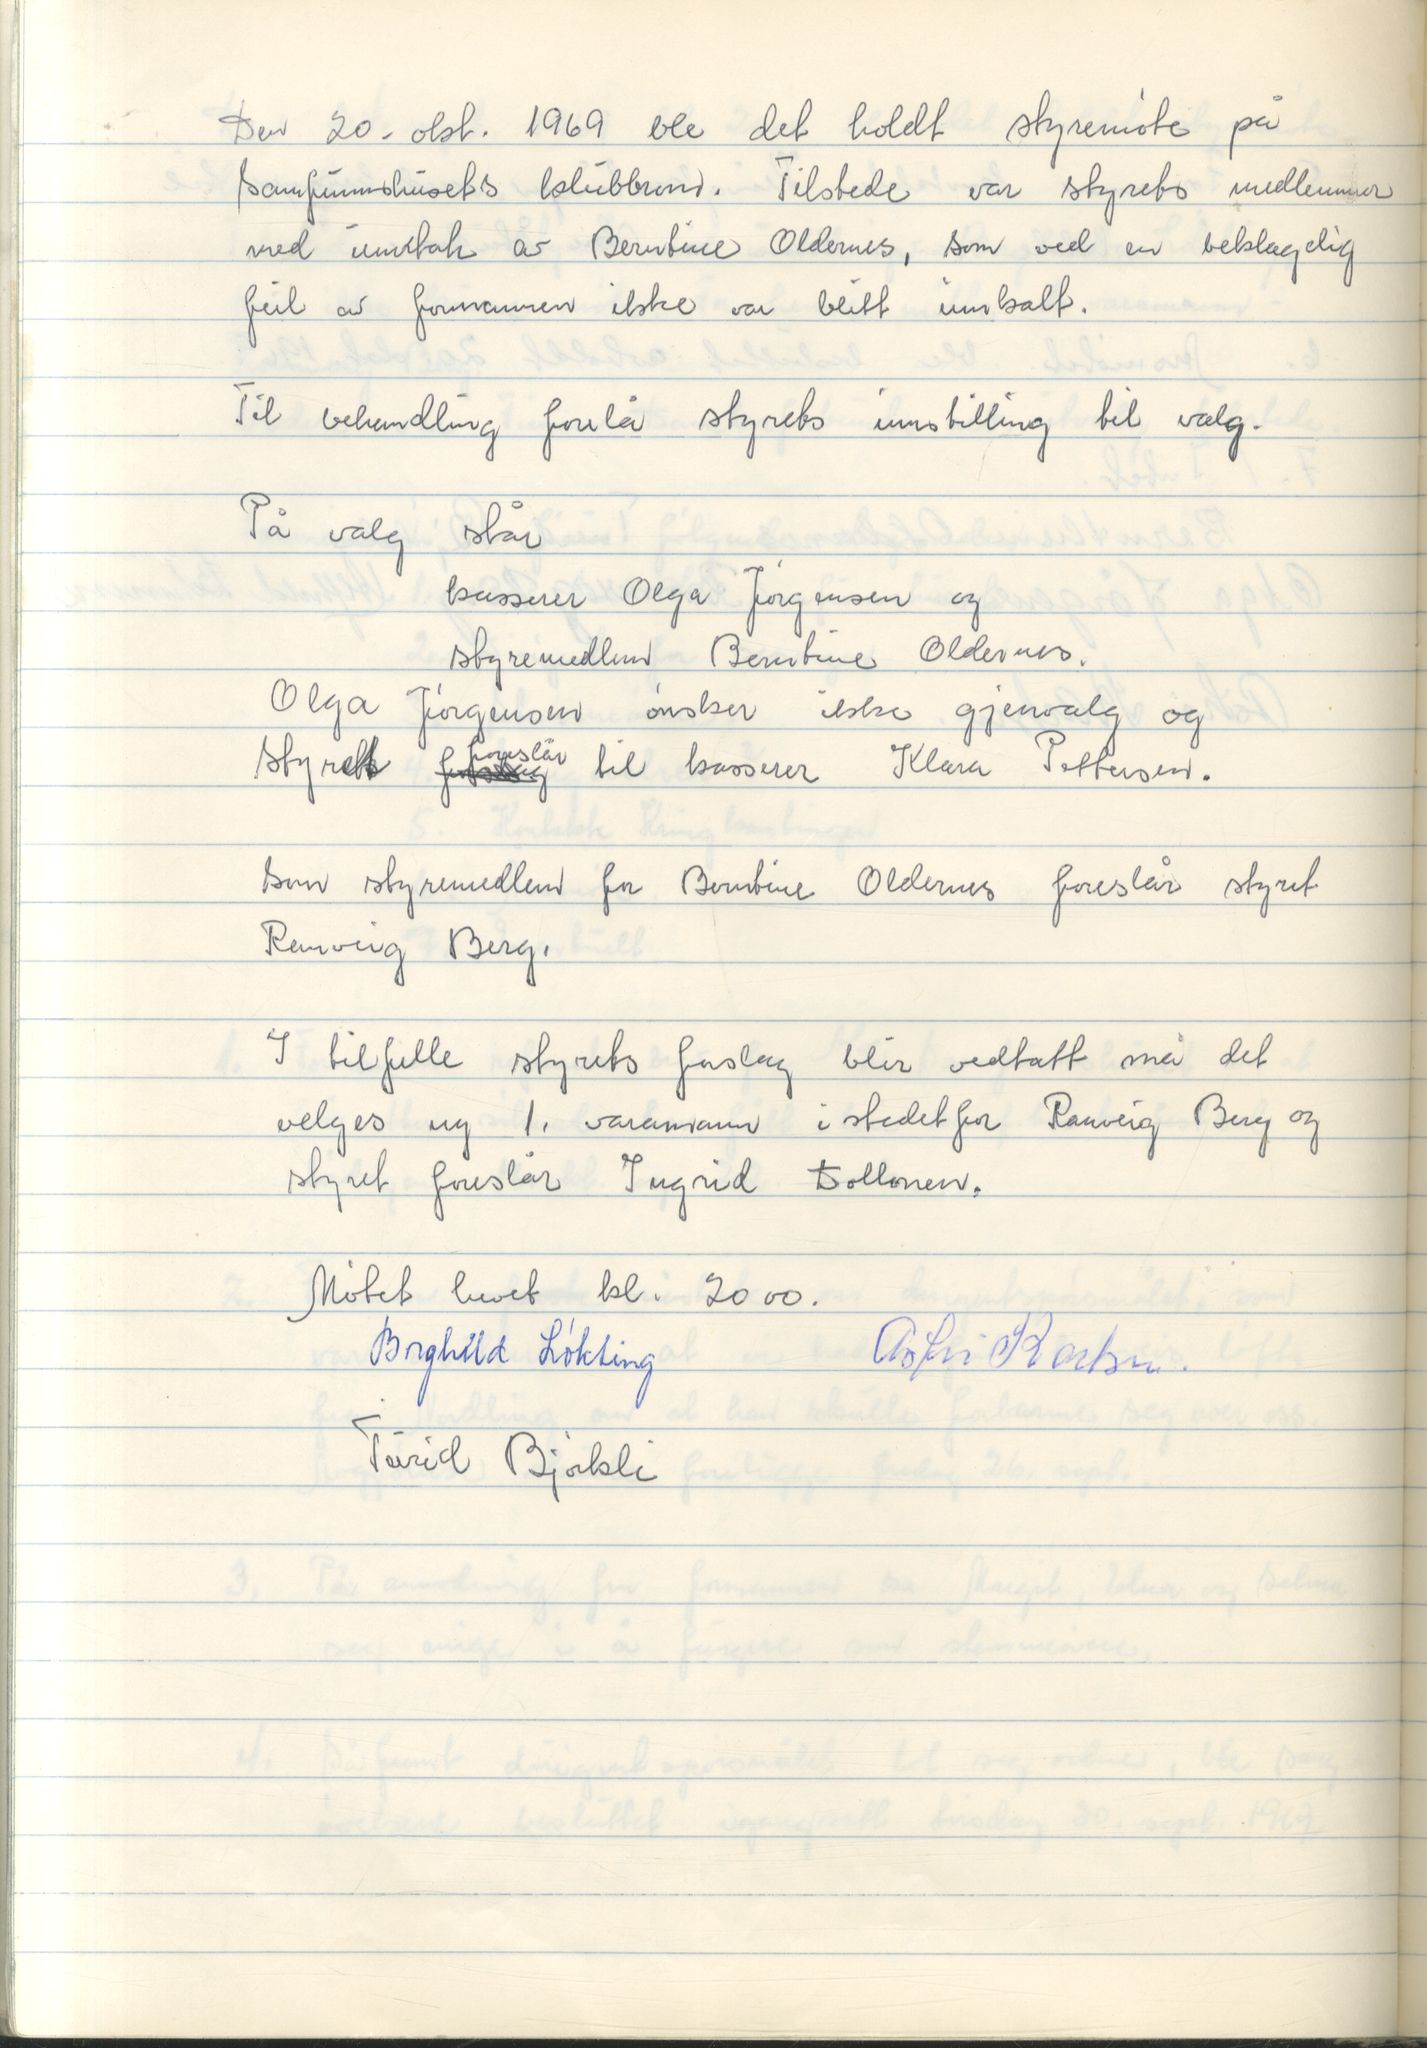 Den 20. okt. 1969 ble det holdt styremöte på
samfunnshusets klubbrom. Tilstede var styrets medlemmer
med unntak av Berntine Oldernes, som ved en beklagelig
feil av formannen ikke var blitt innkalt.
Til behandling forelå styrets innstilling til valg.
På valg står
kasserer Olga Jörgensen og
styremedlem Berntine Oldernes.
Olga Jörgensen önsker ikke gjenvalg og
styret foreslår til kasserer Klara Pettersen.
Som styremedlem for Berntine Oldernes foreslår styret
Ranveig Berg.
I tilfelle styrets forslag blir vedtatt må det
velges ny 1. varamann istedetfor Ranveig Berg og
styret foreslår Ingrid Tollonen.
Mötet hevet kl. 20 00.
Borghild Lökting
Turid Björkli